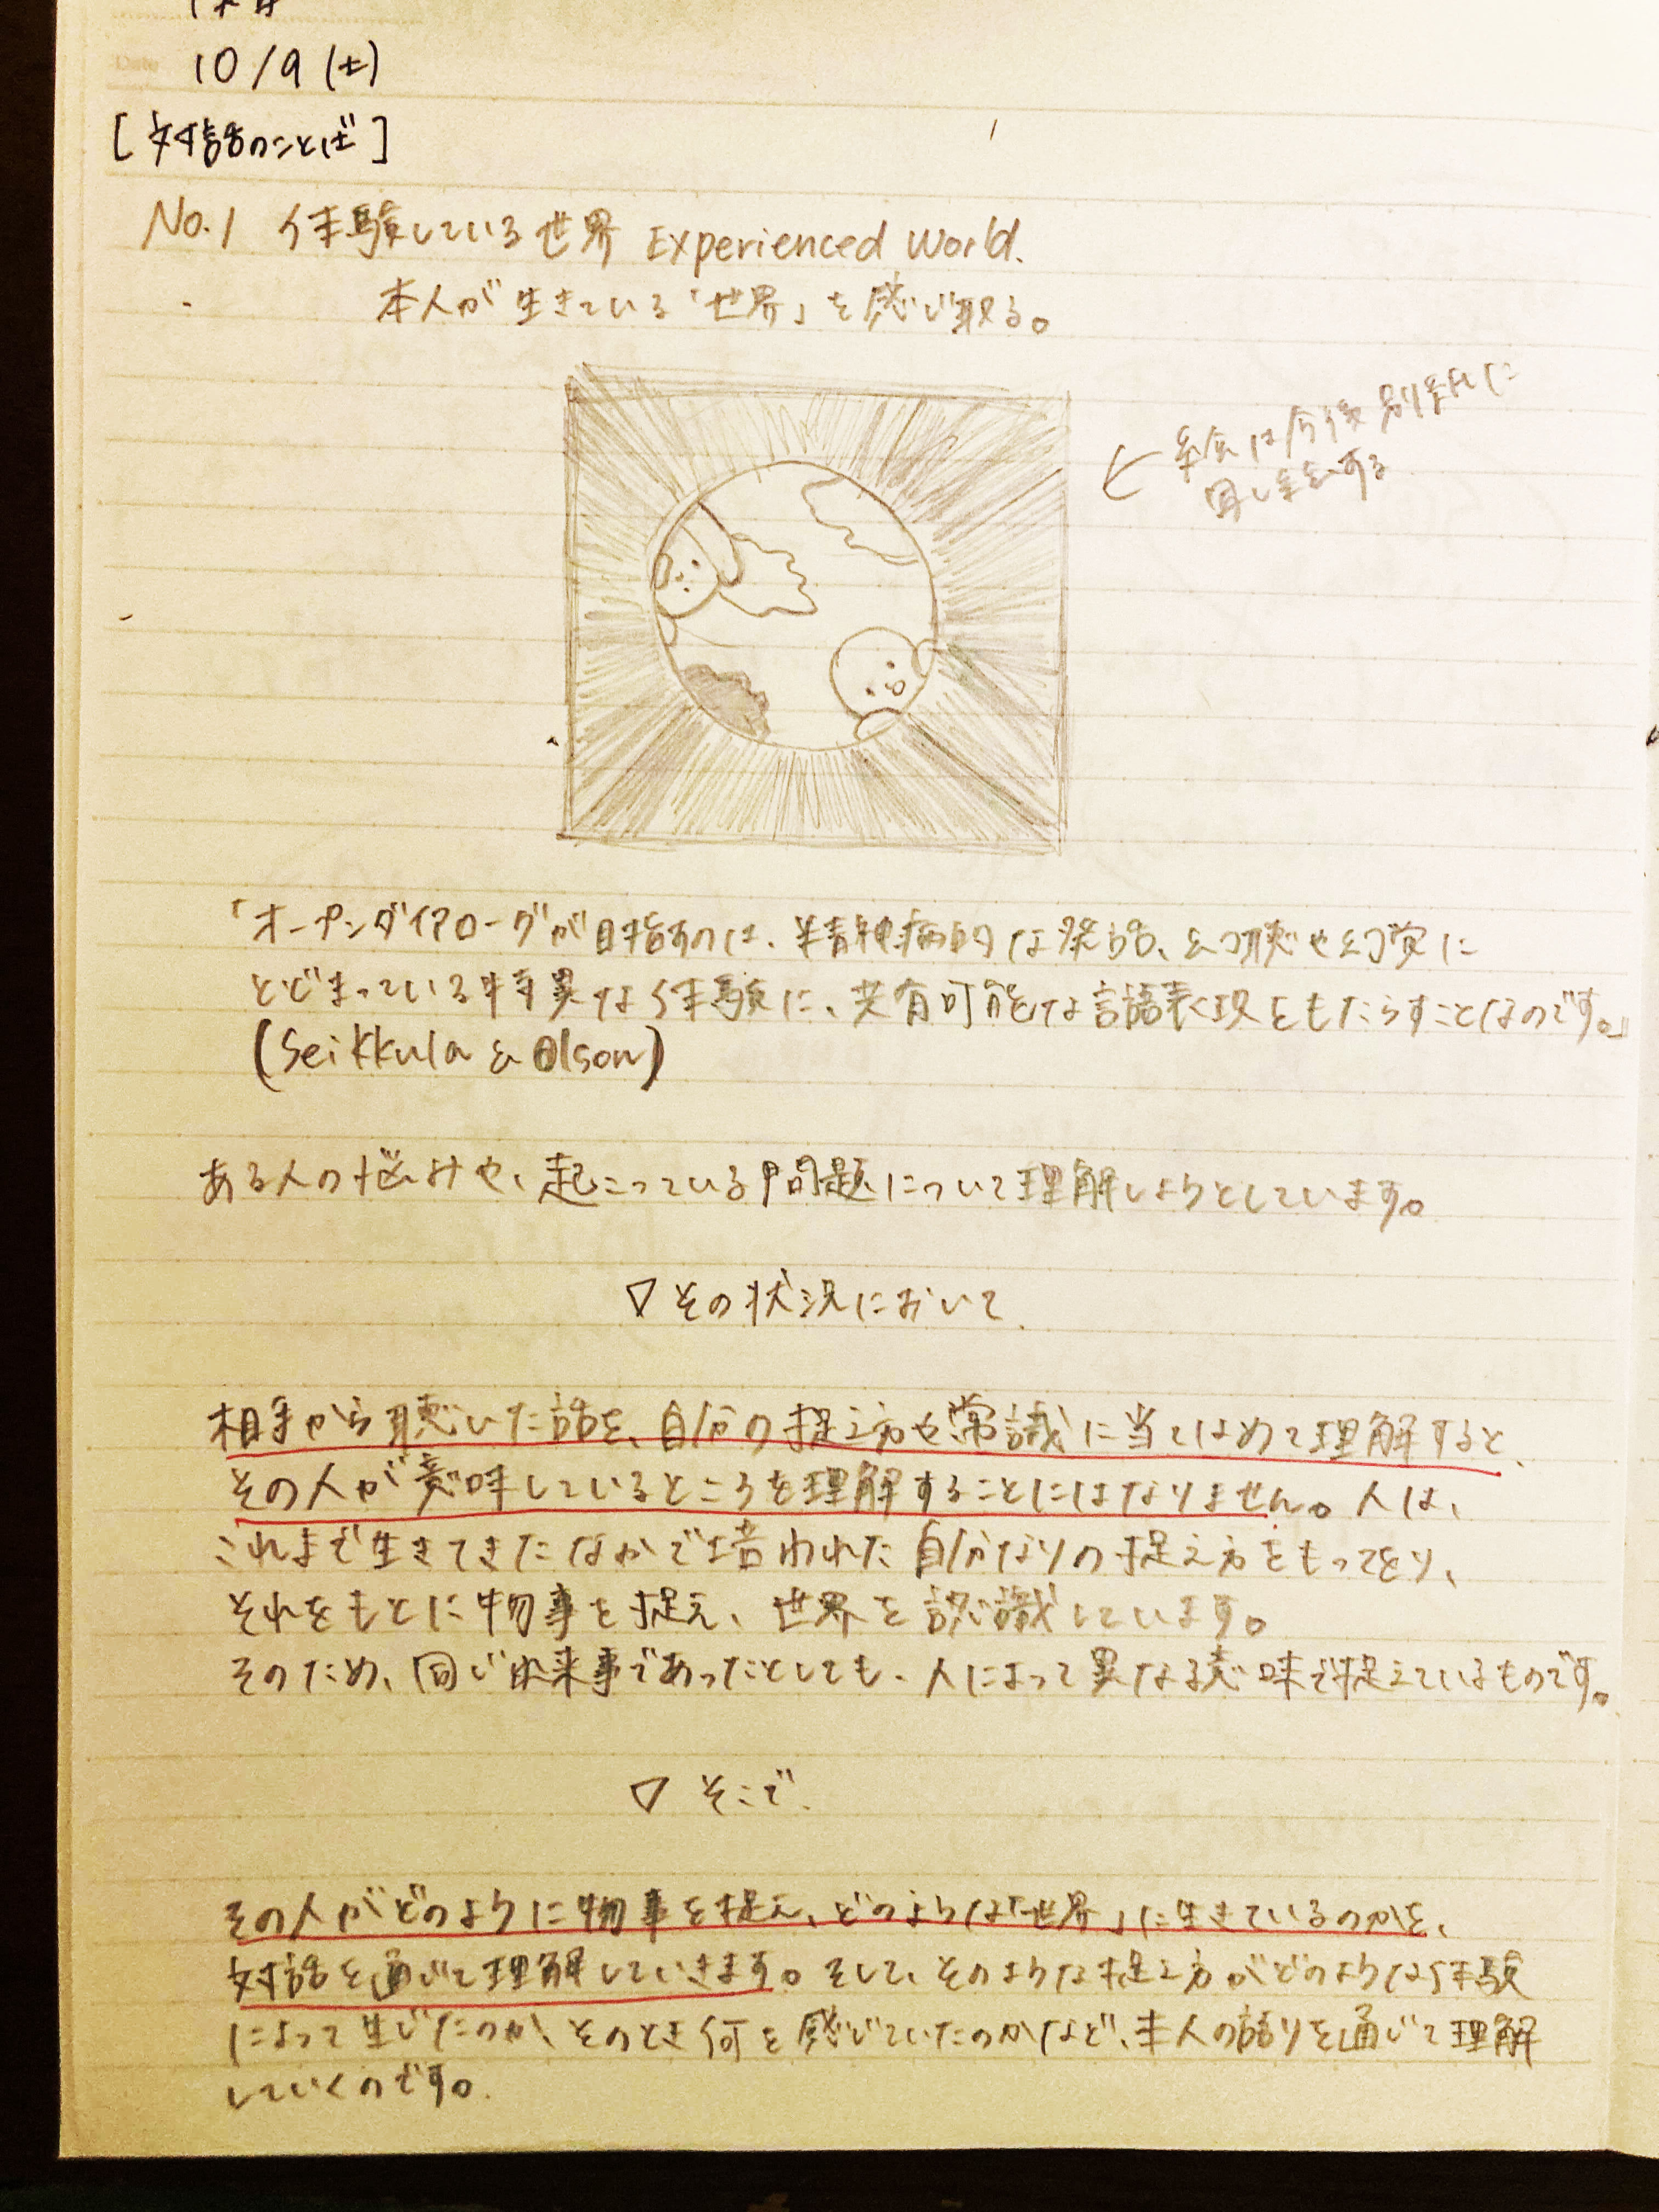 10/9 (土)
[対話のことば]
No.1 体験している世界 Experienced World.
本人が生きている「世界」を感じ取る。
← 絵は今後別紙に
写し絵する
「オープンダイアローグが目指すのは、精神病的な発話、幻聴や幻覚に
とどまっている特異な体験に、共有可能な言語表現をもたらすことなのです。」
(Seikkula & Olson)
ある人の悩みや、起こっている問題について理解しようとしています。
▽その状況において
相手から聴いた話を、自分の捉え方や常識に当てはめて理解すると、
その人が意味しているところを理解することにはなりません。人は、
これまで生きてきたなかで培われた自分なりの捉え方をもっており、
それをもとに物事を捉え、世界を認識しています。
そのため、同じ出来事であったとしても、人によって異なる意味で捉えているものです。
▽ そこで
その人がどのように物事を捉え、どのような「世界」に生きているのかを、
対話を通じて理解していきます。そして、そのような捉え方がどのような体験
によって生じたのか、そのとき何を感じていたのかなど、本人の語りを通じて理解
していくのです。